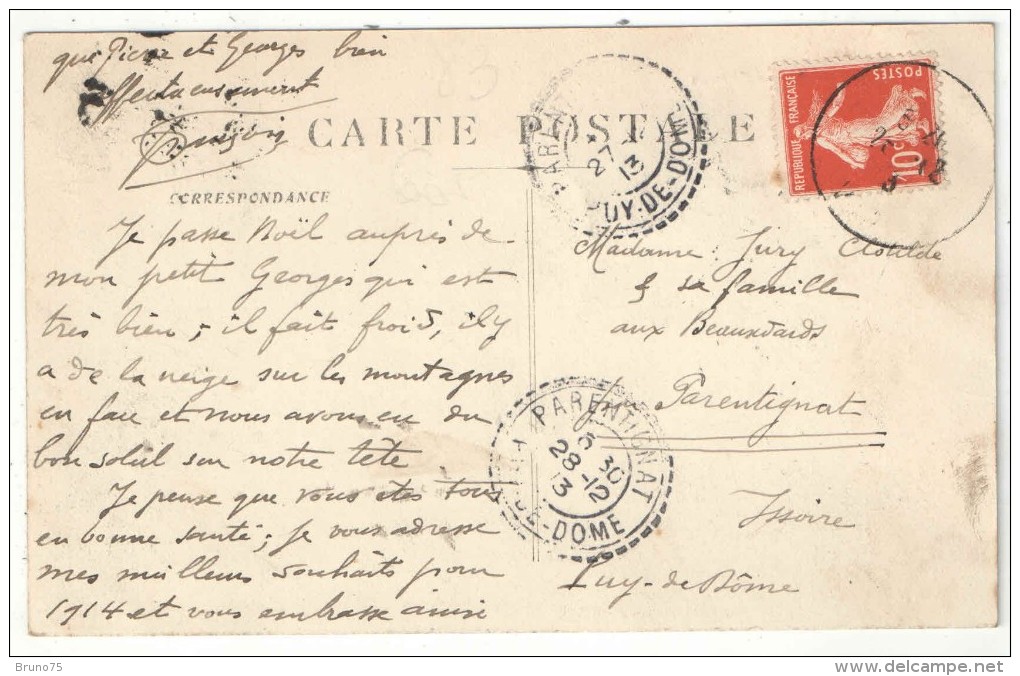 que Pierre et Georges bien
affectueusement
CARTE POSTALE
CORRESPONDANCE
Je passe Noël auprès de
mon petit Georges qui est
très bien ; il fait froid, il y
a de la neige sur les montagnes
en face et nous avons eu du
bon soleil sur notre tête
Je pense que vous êtes tous
en bonne santé ; je vous adresse
mes meilleurs souhaits pour
1914 et vous embrasse ainsi
PARENT
27 12
13
PUY-DE-DOME
REPUBLIQUE FRANÇAISE
POSTES
10c
Madame Jury Clotilde
& sa famille
aux Beauxdards
Parentignat
Issoire
Puy-de-Dôme
PARENTIGNAT
5 30
28 -12
13
PUY-DE-DOME
Bruno75
www.delcampe.net